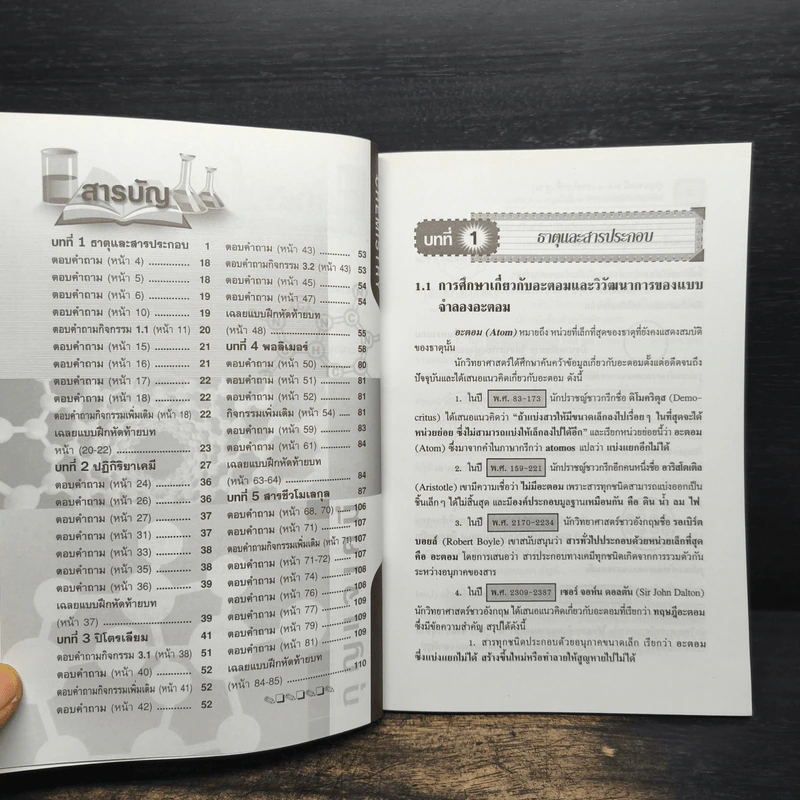 สารบัญ
บทที่ 1 ธาตุและสารประกอบ 1
ตอบคำถาม (หน้า 4) 18
ตอบคำถาม (หน้า 5) 18
ตอบคำถาม (หน้า 6) 19
ตอบคำถาม (หน้า 10) 19
ตอบคำถามกิจกรรม 1.1 (หน้า 11) 20
ตอบคำถาม (หน้า 15) 21
ตอบคำถาม (หน้า 16) 21
ตอบคำถาม (หน้า 17) 22
ตอบคำถาม (หน้า 18) 22
ตอบคำถามกิจกรรมเพิ่มเติม (หน้า 18) 22
เฉลยแบบฝึกหัดท้ายบท
(หน้า 20-22) 23
บทที่ 2 ปฏิกิริยาเคมี 27
ตอบคำถาม (หน้า 24) 36
ตอบคำถาม (หน้า 26) 36
ตอบคำถาม (หน้า 27) 37
ตอบคำถาม (หน้า 31) 37
ตอบคำถาม (หน้า 33) 38
ตอบคำถาม (หน้า 35) 38
ตอบคำถาม (หน้า 36) 39
เฉลยแบบฝึกหัดท้ายบท
(หน้า 37) 39
บทที่ 3 ปิโตรเลียม 41
ตอบคำถามกิจกรรม 3.1 (หน้า 38) 51
ตอบคำถาม (หน้า 40) 52
ตอบคำถามกิจกรรมเพิ่มเติม (หน้า 41) 52
ตอบคำถาม (หน้า 42) 52
ตอบคำถาม (หน้า 43) 53
ตอบคำถามกิจกรรม 3.2 (หน้า 43) 53
ตอบคำถาม (หน้า 45) 54
ตอบคำถาม (หน้า 47) 54
เฉลยแบบฝึกหัดท้ายบท
(หน้า 48) 55
บทที่ 4 พอลิเมอร์ 58
ตอบคำถาม (หน้า 50) 80
ตอบคำถาม (หน้า 51) 81
ตอบคำถาม (หน้า 52) 81
กิจกรรมเพิ่มเติม (หน้า 54) 81
ตอบคำถาม (หน้า 59) 83
ตอบคำถาม (หน้า 61) 84
เฉลยแบบฝึกหัดท้ายบท
(หน้า 63-64) 84
บทที่ 5 สารชีวโมเลกุล 87
ตอบคำถาม (หน้า 68, 70) 106
ตอบคำถาม (หน้า 71) 107
ตอบคำถามกิจกรรมเพิ่มเติม (หน้า 71) 107
ตอบคำถาม (หน้า 71-72) 107
ตอบคำถาม (หน้า 74) 108
ตอบคำถาม (หน้า 76) 108
ตอบคำถาม (หน้า 77) 109
ตอบคำถาม (หน้า 79) 109
ตอบคำถาม (หน้า 81) 109
เฉลยแบบฝึกหัดท้ายบท
(หน้า 84-85) 110
CHEMISTRY
บทที่ 1 ธาตุและสารประกอบ
1.1 การศึกษาเกี่ยวกับอะตอมและวิวัฒนาการของแบบ
จำลองอะตอม
อะตอม (Atom) หมายถึง หน่วยที่เล็กที่สุดของธาตุที่ยังคงแสดงสมบัติ
ของธาตุนั้น
นักวิทยาศาสตร์ได้ศึกษาค้นคว้าข้อมูลเกี่ยวกับอะตอมตั้งแต่อดีตจนถึง
ปัจจุบันและได้เสนอแนวคิดเกี่ยวกับอะตอม ดังนี้
1. ในปี พ.ศ. 83-173 นักปราชญ์ชาวกรีกชื่อ ดิโมคริตุส (Demo-
critus) ได้เสนอแนวคิดว่า "ถ้าแบ่งสารให้มีขนาดเล็กลงไปเรื่อยๆ ในที่สุดจะได้
หน่วยย่อย ซึ่งไม่สามารถแบ่งให้เล็กลงไปได้อีก" และเรียกหน่วยย่อยนี้ว่า อะตอม
(Atom) ซึ่งมาจากคำในภาษากรีกว่า atomos แปลว่า แบ่งแยกอีกไม่ได้
2. ในปี พ.ศ. 159-221 นักปราชญ์ชาวกรีกอีกคนหนึ่งชื่อ อาริสโตเติล
(Aristotle) เขามีความเชื่อว่า ไม่มีอะตอม เพราะสารทุกชนิดสามารถแบ่งออกเป็น
ชิ้นเล็กๆ ได้ไม่สิ้นสุด และมีองค์ประกอบมูลฐานเหมือนกัน คือ ดิน น้ำ ลม ไฟ
3. ในปี พ.ศ. 2170-2234 นักวิทยาศาสตร์ชาวอังกฤษชื่อ รอเบิร์ต
บอยล์ (Robert Boyle) เขาสนับสนุนว่า สารทั่วไปประกอบด้วยหน่วยเล็กที่สุด
คือ อะตอม โดยการเสนอว่า สารประกอบทางเคมีทุกชนิดเกิดจากการรวมตัวกัน
ระหว่างอนุภาคของสาร
4. ในปี พ.ศ. 2309-2387 เซอร์ จอห์น ดอลตัน (Sir John Dalton)
นักวิทยาศาสตร์ชาวอังกฤษ ได้เสนอแนวคิดเกี่ยวกับอะตอมที่เรียกว่า ทฤษฎีอะตอม
ซึ่งมีข้อความสำคัญ สรุปได้ดังนี้
1. สารทุกชนิดประกอบด้วยอนุภาคขนาดเล็ก เรียกว่า อะตอม
ซึ่งแบ่งแยกไม่ได้ สร้างขึ้นใหม่หรือทำลายให้สูญหายไปไม่ได้